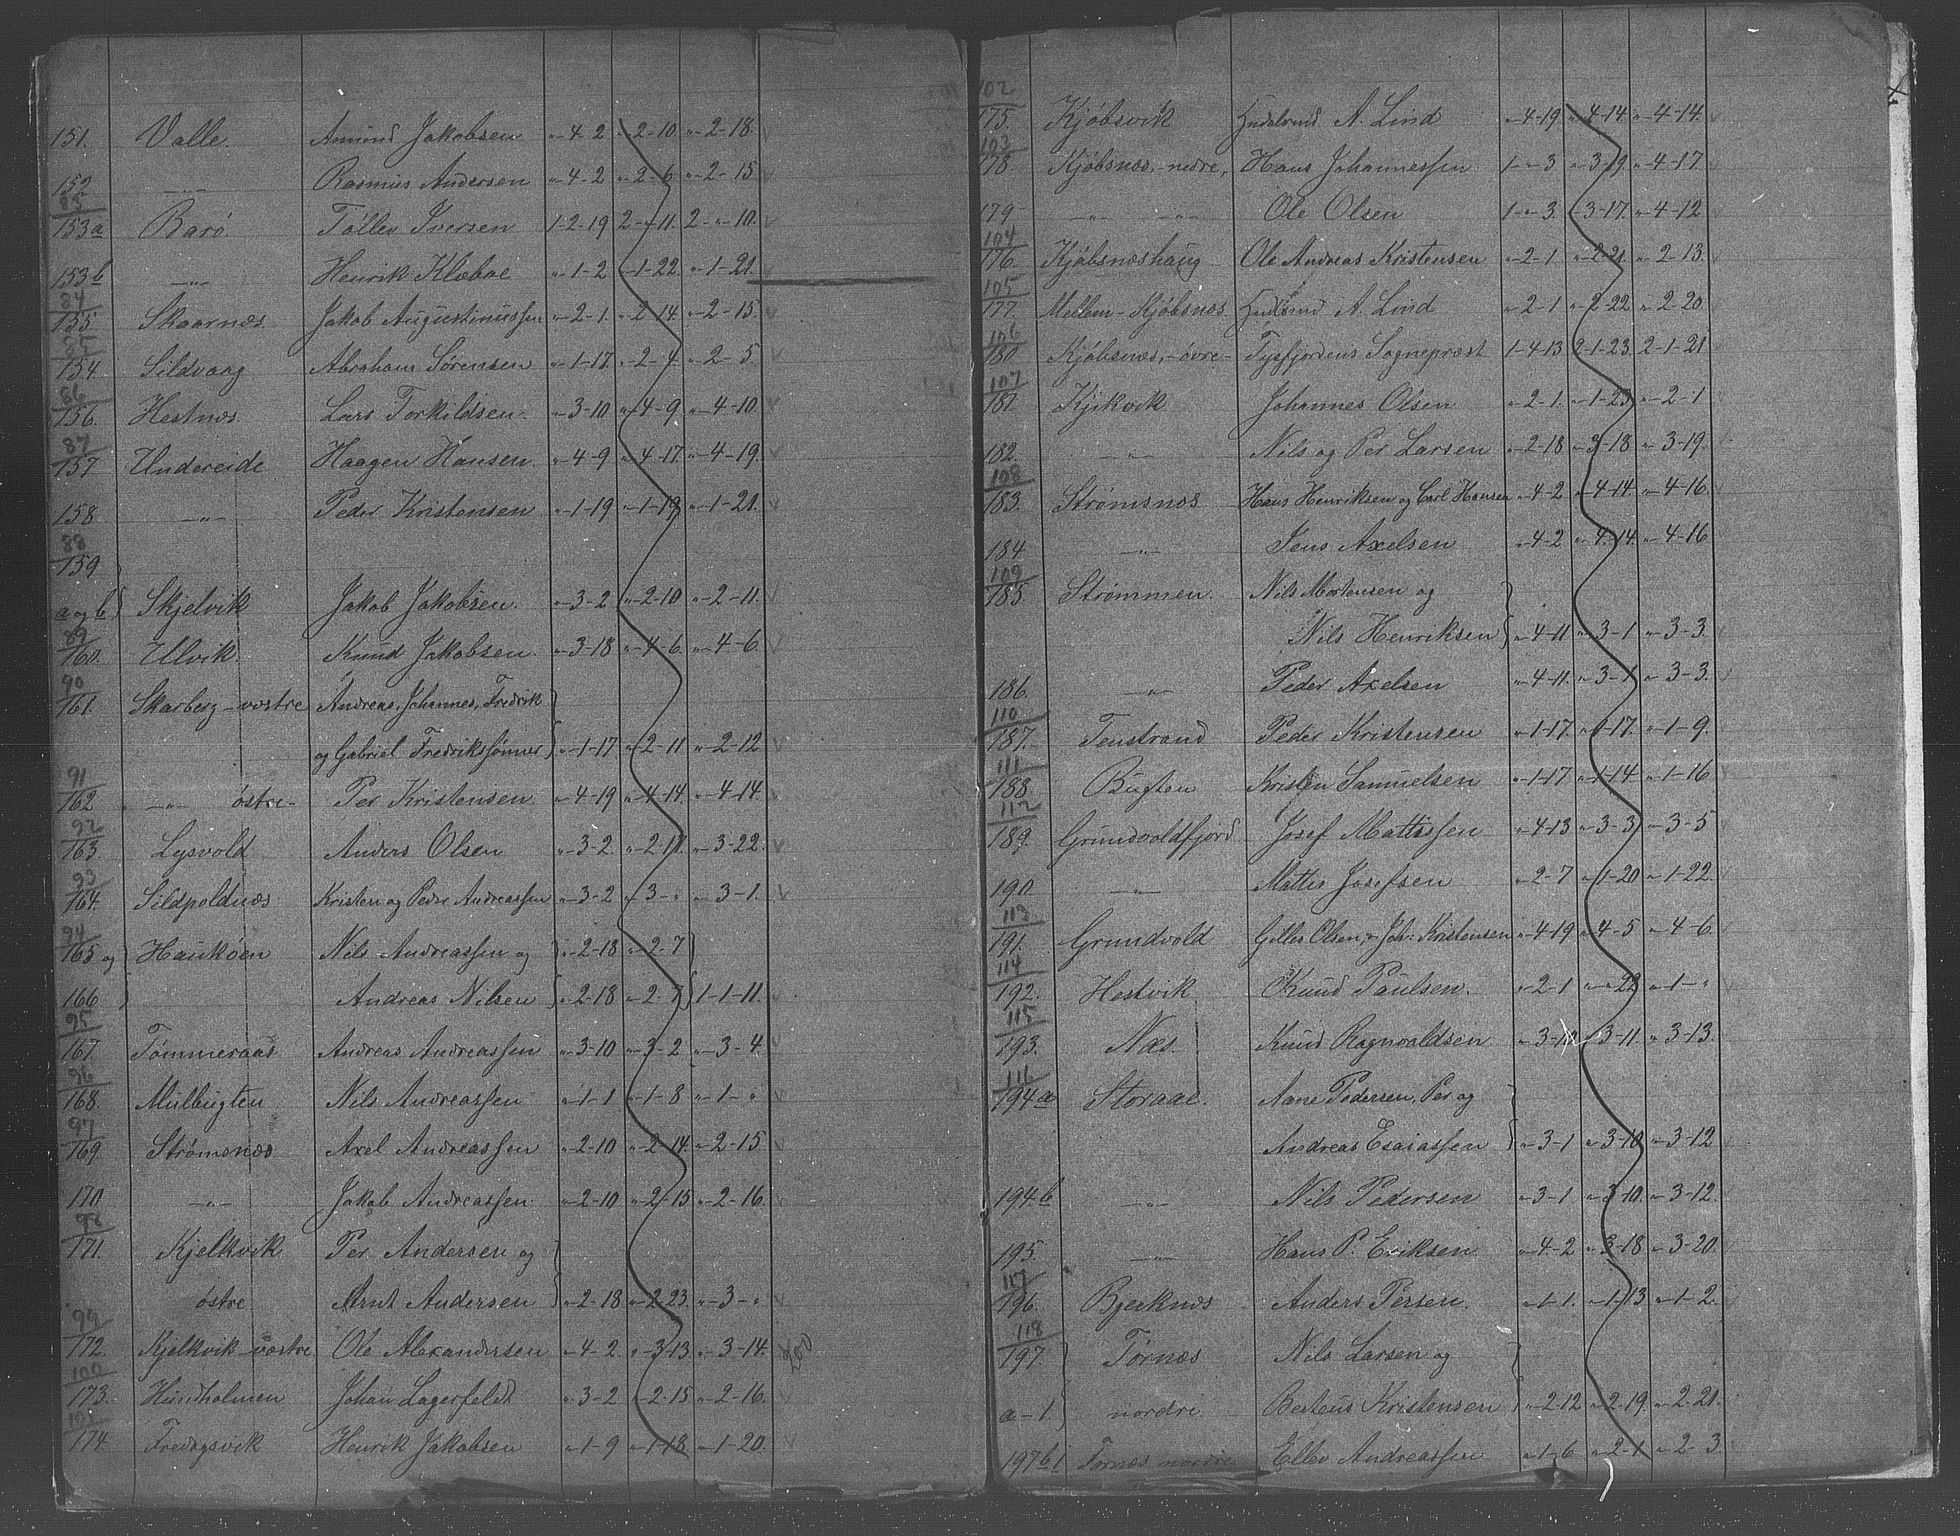 151. Valle. Amund Jakobsen „-4-2 „-2-10. „-2-18.
152 —„— Rasmus Andersen „-4-2 „-2-6. „-2-15
153a Barö. Tollev Iversen 1-2-19 2-„-11. 2-„-10.
153b —„— Henrik Klæboe „-1-2 „-1-22. „-1-21.
84
155 Skaarnæs. Jakob Augustinussen „-2-1. „-2-14. „-2-15.
154. Sildvaag Abraham Sörensen „-1-17. „-2-4. „-2-5.
86
156. Hestnæs. Lars Torkildsen. „-3-10 „-4-9 „-4-10.
87
157 Undereide Haagen Hansen. „-4-9 „-4-17. „-4-19.
158 —„— Peder Kristensen „-1-19 „-1-19. „-1-21.
88
159
a og b } Skjelvik Jakob Jakobsen. „-3-2 „-2-10 „-2-11.
89
160. Ulvik. Knud Jakobsen. „-3-18 „-4-6. „-4-6.
90
161. Skarberg-vestre Andreas, Johannes, Fredrik
og Gabriel Fredrikssönner } „-1-17. „-2-11 „-2-12
91
162 —„— östre- Per Kristensen. „-4-19 „-4-14. „-4-14.
92
163. Lysvold Anders Olsen „-3-2. „-2-17. „-3-22.
93
164. Sildpoldnæs Kristen og Peder Andreassen „-3-2 „-3-„ „-3-1.
94
165 og } Haukøen Nils Andreassen og } „-2-18 „-2-7 }
166 Andreas Nilsen } „-2-18 „-2-7 } 1-1-11.
95
167. Tømmeraas Andreas Andreassen „-3-10 „-3-2 „-3-4.
96
168. Mulbugten Nils Andreassen „-1-1 „-1-8 „-1-„
97
169 Strømsnæs Axel Andreassen „-2-10 „-2-14. „-2-15
170 —„— Jakob Andreassen „-2-10 „-2-15 „-2-16.
98
171. Kjelkvik Per Andersen og
östre Arnt Andersen } „-2-18 „-2-23. „-3-„
99
172. Kjelkvik-vestre. Ole Alexandersen „-4-2. „-3-13. „-3-14. 200
100
173. Hundholmen Johan Lagerfeldt „-3-2 „-2-15 „-2-16.
174. Fredagsvik Henrik Jakobsen „-1-9 „-1-18. „-1-20.
102
175. Kjöbsvik A. Lind „-4-19 „-4-14. „-4-14.
103
178. Kjöbsnæs,-nedre, Hans Johannessen. 1-„-3 „-3-19 „-4-17.
179 —„— —„— Ole Olsen 1-„-3. „-3-17. „-4-12
104
176. Kjöbsnæshaug Ole Andreas Kristensen „-2-1 „-2-21 „-2-13.
105
177. Mellem-Kjöbsnæs. A. Lind „-2-1 „-2-22 „-2-20.
106
180. Kjöbsnæs,-övre- Tysfjordens Sogneprest 1-4-13 2-1-23. 2-1-21
107
181. Kjikvik Johannes Olsen „-2-1. „-1-23. „-2-1
182. —„— Nils og Per Larsen „-2-18 „-3-18 „-3-19.
108
183. Strømsnæs Hans Henriksen og Carl Hansen „-4-2 „-4-14 „-4-16.
184 —„— Jens Axelsen „-4-2 „-4-14. „-4-16
109
185 Strømmen. Nils Mortensen og
Nils Henriksen } „-4-11 „-3-1 „-3-3.
186. —„— Peder Axelsen „-4-11. „-3-1 „-3-3.
110
187. Tenstrand Peder Kristensen „-1-17. „-1-17. „-1-9.
111
188. Bugten Kristen Samuelsen „-1-17. „-1-14 „-1-16
112
189. Grundvoldfjord Josef Mattissen „-4-13 „-3-3 „-3-5
190. —„— Mattis Josefsen „-2-7 „-1-20 „-1-22.
113
191. Grundvold Gilles Olsen, & Joh. Kristensen „-4-19 „-4-5 „-4-6.
114
192. Hestvik. Knud Paulsen. „-2-1 „-„-22 „-1-„
115
193. Næs. Knud Ragnvaldsen „-3- „-3-11. „-3-13.
116
194 a Storaae. Aane Pedersen, Per og
Andreas Esaiassen } „-3-1 „-3-10 „-3-12
194 b —„— Nils Pedersen „-3-1 „-3-10. „-3-12.
195. —„— Hans P. Eriksen „-4-2 „-3-18 „-3-20.
117
196. Bjerknæs Anders Persen. „-1-1. „-1-13 „-1-2.
118
197. } Tørnæs Nils Larsen og
a-1. } nordre Berteus Kristensen } „-2-12 „-2-19 „-2-21.
197b1 Tørnæs nordre Ellev Andreassen „-1-6 „-2-1 „-2-3.